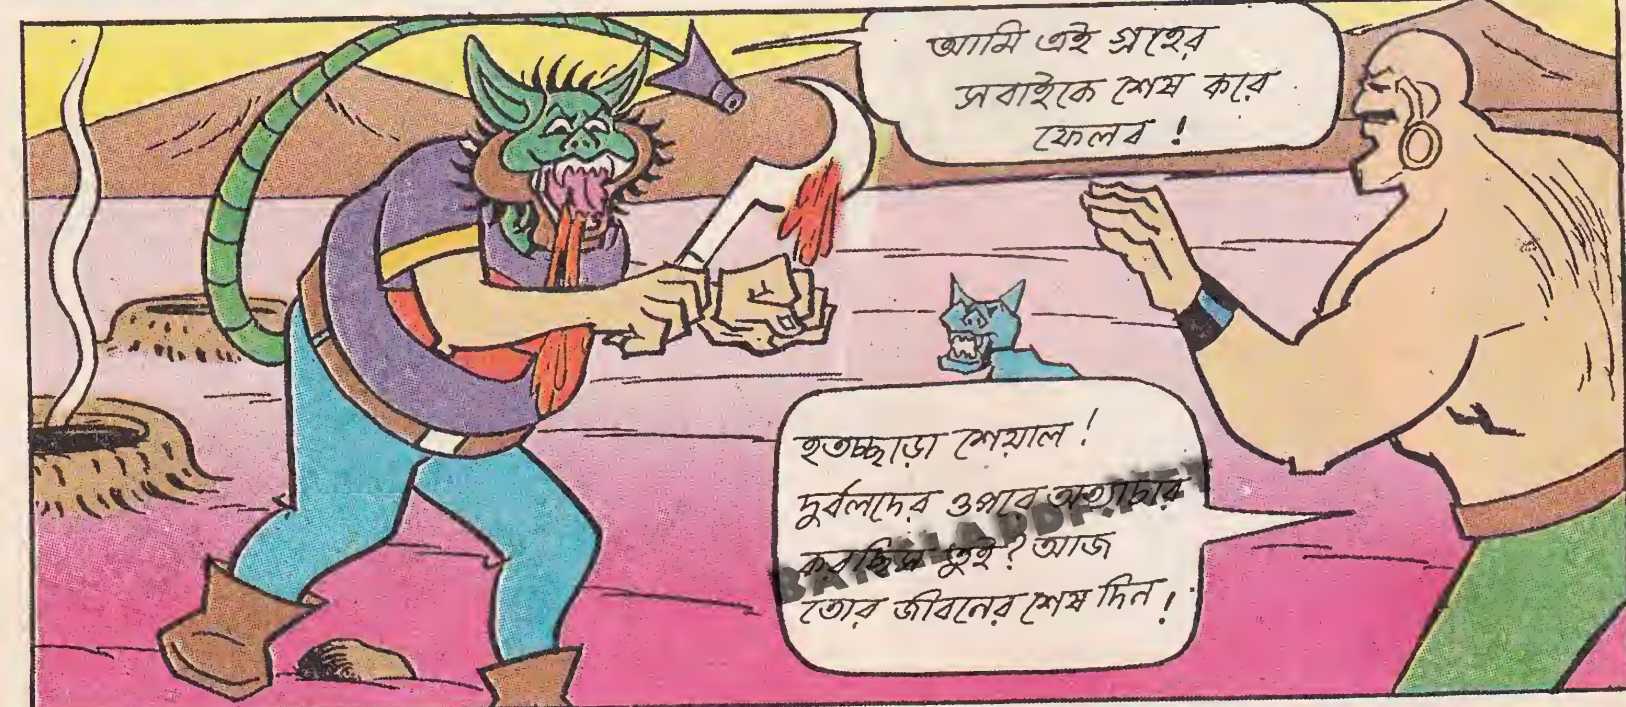 আমি এই গ্রহের
সবাইকে শেষ করে
ফেলব !
হতচ্ছাড়া শেয়াল !
দুর্বলদের ওপরে অত্যাচার
করছিস তুই? আজ
তোর জীবনের শেষ দিন !
BANGLAPDF.NET